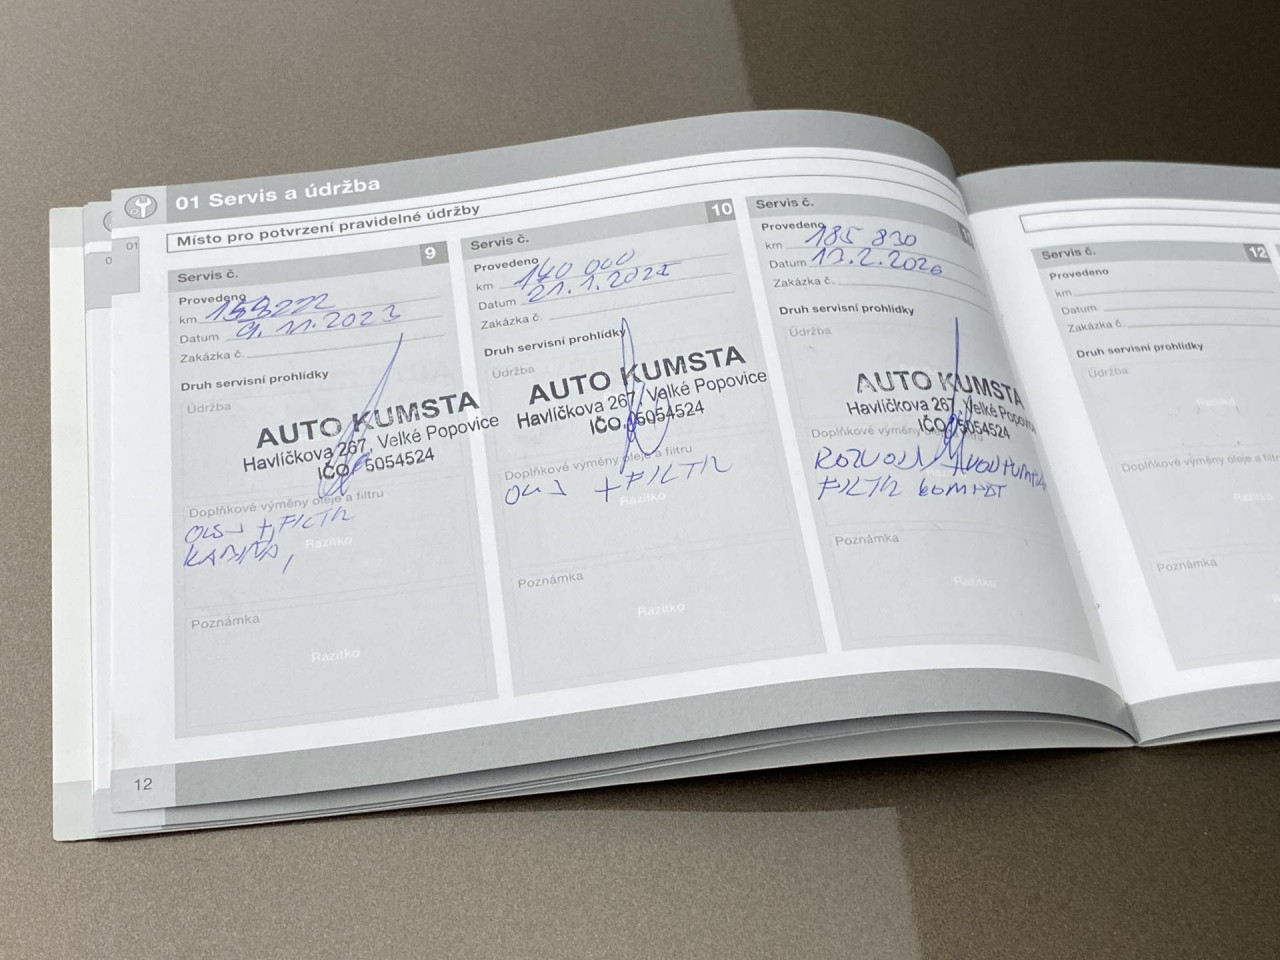 01 Servis a údržba
Místo pro potvrzení pravidelné údržby
01
0
Servis č. 9
Provedeno
km
Datum 9.11.2023
Zakázka č.
Druh servisní prohlídky
Údržba
AUTO KUMSTA
Havlíčkova 267, Velké Popovice
IČO 5054524
Doplňkové výměny oleje a filtru
OLEJ + FILTR
KABINA,
Razítko
Poznámka
Razítko
Servis č. 10
Provedeno
km 140 000
Datum 21.1.2025
Zakázka č.
Druh servisní prohlídky
Údržba
AUTO KUMSTA
Havlíčkova 267, Velké Popovice
IČO 05054524
Doplňkové výměny oleje a filtru
OLEJ + FILTR
Razítko
Poznámka
Razítko
Servis č. 11
Provedeno
km 185 830
Datum 13.2.2026
Zakázka č.
Druh servisní prohlídky
Údržba
AUTO KUMSTA
Havlíčkova 267, Velké Popo
IČO 05054524
Doplňkové výměny oleje a filtru
ROZVODY +
FILTR
Poznámka
Razítko
12
Servis č. 12
Provedeno
km
Datum
Zakázka č.
Druh servisní prohlídky
Údržba
Razítko
Doplňkové výměny oleje a filtr
Razítko
Poznámka